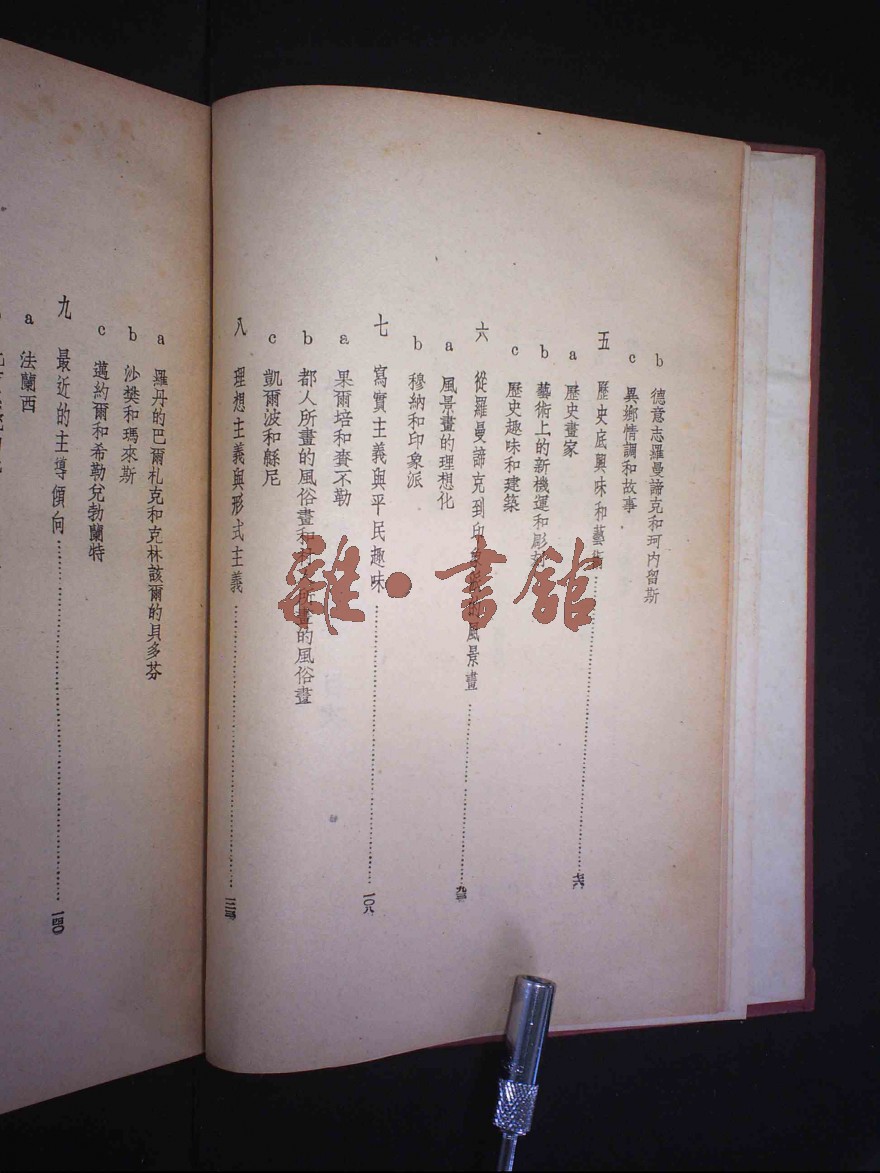 b 德意志羅曼諦克和珂內留斯
c 異鄉情調和故事
五 歷史底興味和藝術……七六
a 歷史畫家
b 藝術上的新機運和彫刻
c 歷史趣味和建築
六 從羅曼諦克到印象派的風景畫……九三
a 風景畫的理想化
b 穆納和印象派
七 寫實主義與平民趣味……一〇八
a 果爾培和賚不勒
b 都人所畫的風俗畫和村人所畫的風俗畫
c 凱爾波和緜尼
八 理想主義與形式主義……
a 羅丹的巴爾札克和克林該爾的貝多芬
b 沙樊和瑪來斯
c 邁約爾和希勒兌勃蘭特
九 最近的主導傾向……一四〇
a 法蘭西
雜·書館